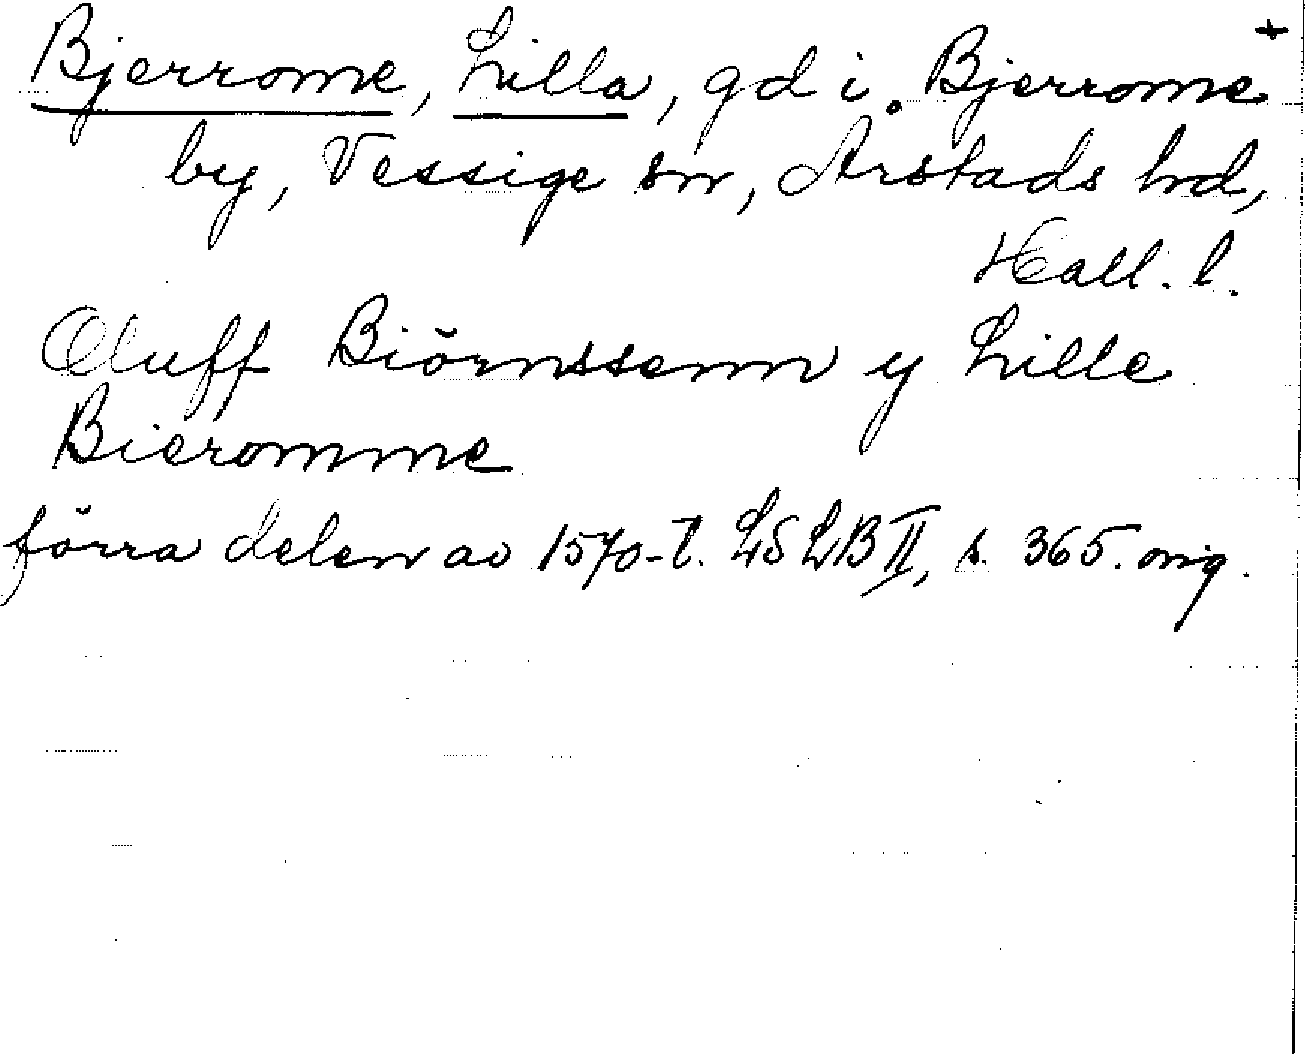 Bjerrome, Lilla, gd i Bjerrome +
by, Vessige sn, Årstads hd,
Hall. l.
Oluff Biörnssenn y Lille
Bieromme
förra delen av 1570-t. LSLB II, s. 365. orig.